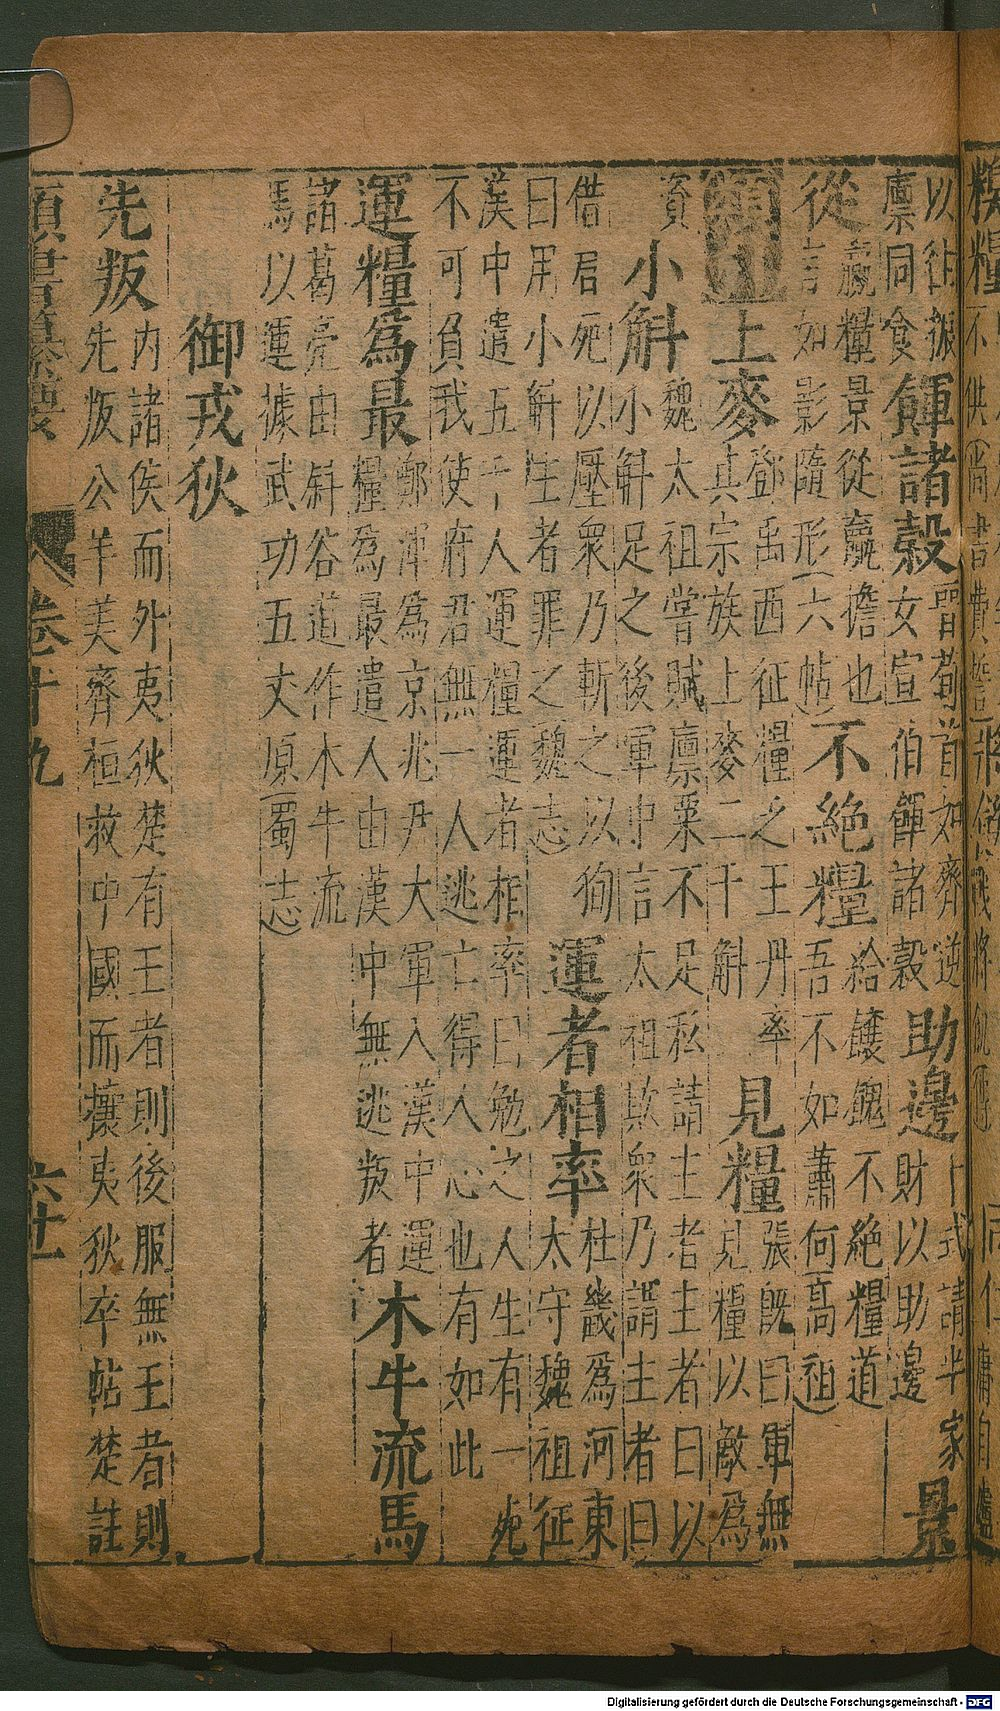 以往振
廪同食餫諸穀晋荀首如齊逆
女宣伯餫諸穀助邊卜式請半家
財以助邊景
從贏糧景從贏擔也
言如影隨形(六帖)不絶糧給饋餽不絶糧道
吾不如蕭何高祖
上麥鄧禹西征糧乏王丹率
其宗族上麥二千斛見糧張既曰軍無
見糧以敵爲
資小斛魏太祖嘗賦廪粟不足私請主者主者曰以
小斛足之後軍中言太祖欺衆乃謂主者曰
借君死以壓衆乃斬之以徇
曰用小斛主者罪之魏志運者相率杜畿爲河東
太守魏祖征
漢中遣五千人運糧運者相率曰勉之人生有一死
不可負我使府君無一人逃亡得人心也有如此
運糧爲最鄭渾爲京兆尹大軍入漢中運
糧爲最遣人由漢中無逃叛者木牛流馬
諸葛亮由斜谷道作木牛流
馬以運據武功五丈原(蜀志)
御戎狄
先叛内諸侯而外夷狄楚有王者則後服無王者則
先叛公羊美齊桓救中國而攘夷狄卒帖楚註
卷十九
六十一
Digitalisierung gefördert durch die Deutsche Forschungsgemeinschaft - DFG